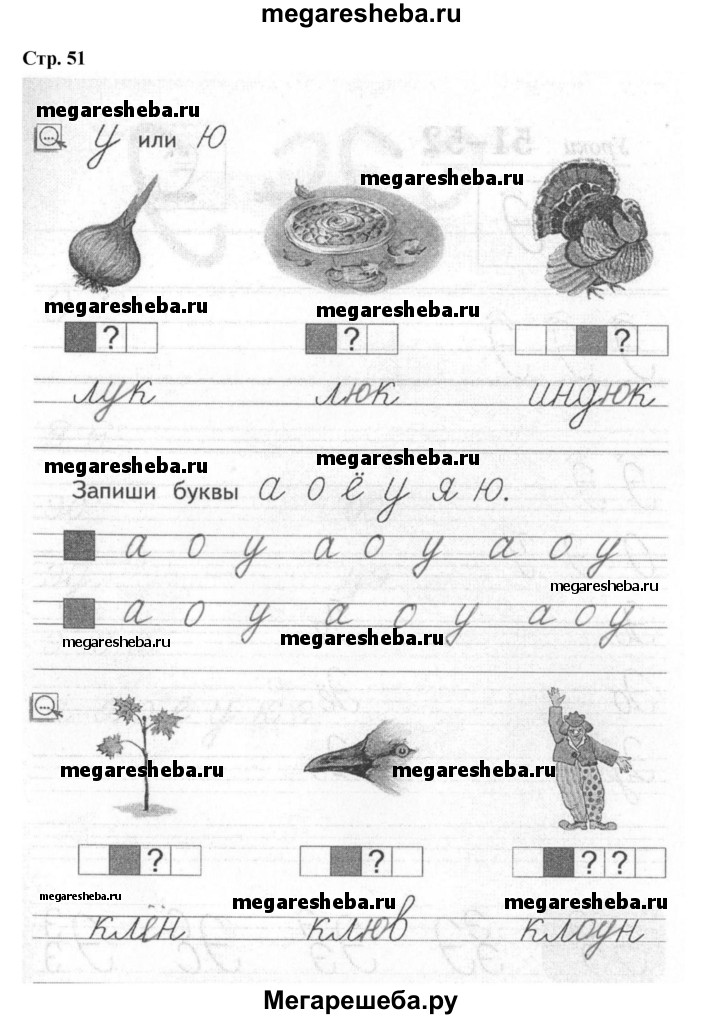 megaresheba.ru
Стр. 51
megaresheba.ru
у или ю
megaresheba.ru
megaresheba.ru megaresheba.ru
? ? ?
лук люк индюк
megaresheba.ru megaresheba.ru
Запиши буквы а о ё у я ю.
а о у а о у а о у
megaresheba.ru
а о у а о у а о у
megaresheba.ru megaresheba.ru
megaresheba.ru megaresheba.ru
? ? ? ?
megaresheba.ru megaresheba.ru megaresheba.ru
клён клюв клоун
Мегарешеба.ру